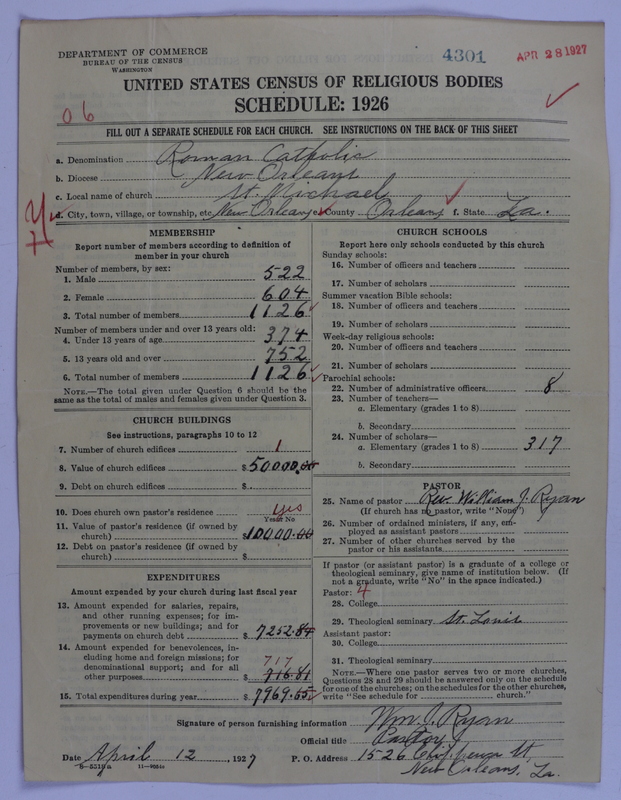 DEPARTMENT OF COMMERCE
BUREAU OF THE CENSUS
WASHINGTON
4301
APR 28 1927
UNITED STATES CENSUS OF RELIGIOUS BODIES
SCHEDULE: 1926
06
FILL OUT A SEPARATE SCHEDULE FOR EACH CHURCH. SEE INSTRUCTIONS ON THE BACK OF THIS SHEET
a. Denomination Roman Catholic
b. Diocese New Orleans
c. Local name of church St. Michael
d. City, town, village, or township, etc New Orleans e. County Orleans f. State La.
MEMBERSHIP
Report number of members according to definition of
member in your church
Number of members, by sex:
1. Male 522
2. Female 604
3. Total number of members 1126
Number of members under and over 13 years old:
4. Under 13 years of age 374
5. 13 years old and over 752
6. Total number of members 1126
NOTE.—The total given under Question 6 should be the
same as the total of males and females given under Question 3.
CHURCH BUILDINGS
See instructions, paragraphs 10 to 12
7. Number of church edifices 1
8. Value of church edifices $50000.00
9. Debt on church edifices $
10. Does church own pastor's residence yes
Yes or No
11. Value of pastor's residence (if owned by
church) $10000.00
12. Debt on pastor's residence (if owned by
church) $
EXPENDITURES
Amount expended by your church during last fiscal year
13. Amount expended for salaries, repairs,
and other running expenses; for im-
provements or new buildings; and for
payments on church debt $7252.84
14. Amount expended for benevolences, in-
cluding home and foreign missions; for
denominational support; and for all 717
other purposes $716.81
15. Total expenditures during year $7969.65
CHURCH SCHOOLS
Report here only schools conducted by this church
Sunday schools:
16. Number of officers and teachers
17. Number of scholars
Summer vacation Bible schools:
18. Number of officers and teachers
19. Number of scholars
Week-day religious schools:
20. Number of officers and teachers
21. Number of scholars
Parochial schools:
22. Number of administrative officers 8
23. Number of teachers—
a. Elementary (grades 1 to 8)
b. Secondary
24. Number of scholars—
a. Elementary (grades 1 to 8) 317
b. Secondary
PASTOR
25. Name of pastor Rev. William J. Ryan
(If church has no pastor, write "None")
26. Number of ordained ministers, if any, em-
ployed as assistant pastors
27. Number of other churches served by the
pastor or his assistants
If pastor (or assistant pastor) is a graduate of a college or
theological seminary, give name of institution below. (If
not a graduate, write "No" in the space indicated.)
Pastor: 4
28. College
29. Theological seminary St. Louis
Assistant pastor:
30. College
31. Theological seminary
NOTE.—Where one pastor serves two or more churches,
Questions 28 and 29 should be answered only on the schedule
for one of the churches; on the schedules for the other churches,
write "See schedule for church."
Signature of person furnishing information Wm. J. Ryan
Official title Pastor
Date April 12, 1927 P. O. Address 1526 Chippewa St.
New Orleans, La.